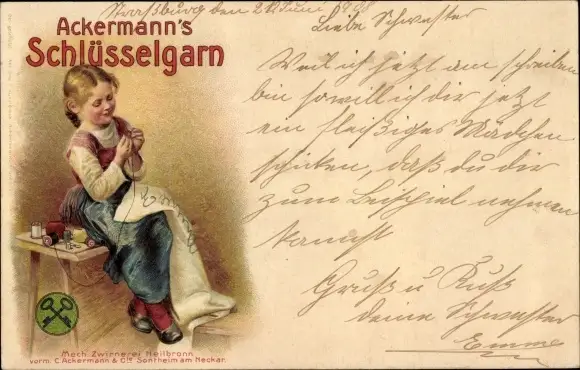 Straßburg den 24 Juni 1908
Liebe Schwester
Ackermann's
Schlüsselgarn
Weil ich jetzt am schreiben
bin so will ich dir jetzt
ein fleißiges Mädchen
schicken, daß du dir
zum Beispiel nehmen
kannst
Gruß u Kuß
deine Schwester
Emma
Mech. Zwirnerei Heilbronn
vorm. C. Ackermann & Cie Sontheim am Neckar.